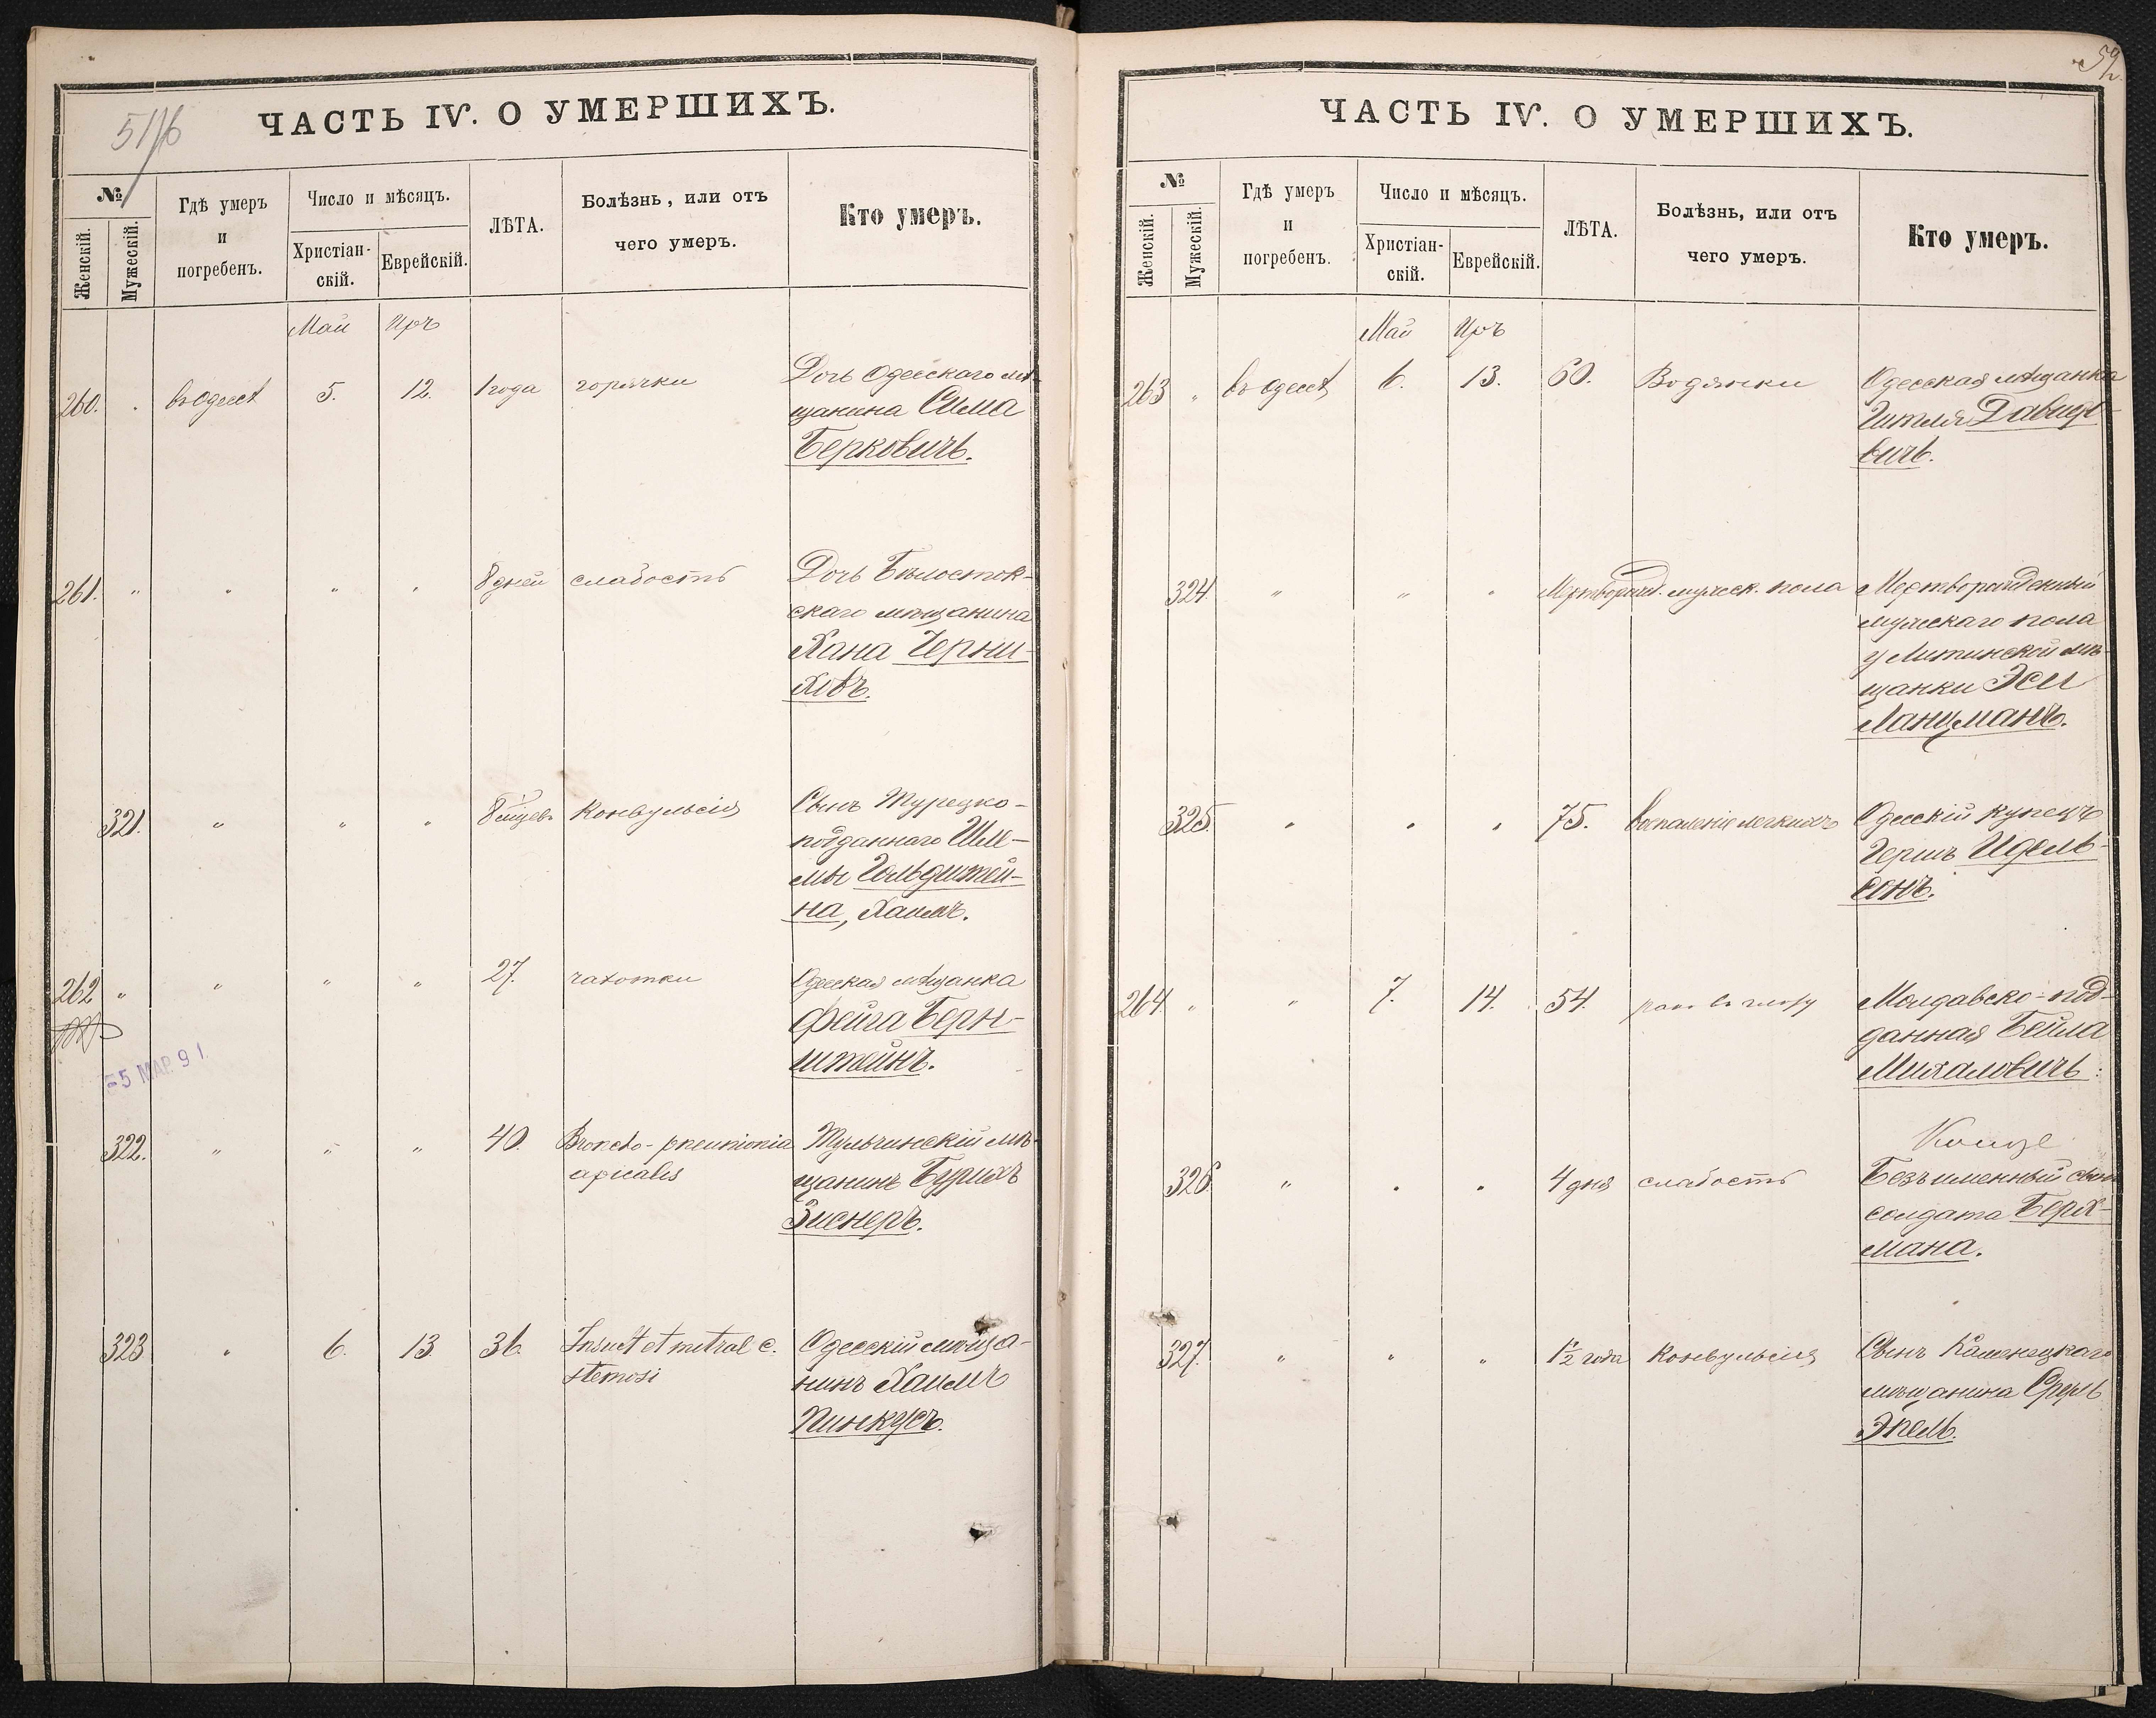 51/16
ЧАСТЬ IV. О УМЕРШИХЪ.
№
Женскій.
Мужескій.
Гдѣ умеръ
и
погребенъ.
Число и мѣсяцъ.
Христіан-
скій.
Еврейскій.
ЛѢТА.
Болѣзнь, или отъ
чего умеръ.
Кто умеръ.
Май Иръ
260. въ Одессѣ 5. 12. 1 года горячки Дочь Одесскаго мѣ-
щанина Сима
Берковичъ.
261. " " " " 8 дней слабость Дочь Бѣлосток-
скаго мѣщанина
Хана Черни-
ховъ.
321. " " " Конвульсія Сынъ Турецко-
подданнаго Шле-
мы Гольдштей-
на, Хаимъ.
262 " " " " 27. чахотки Одесская мѣщанка
Фейга Берн-
штейнъ.
-5 МАР. 91
322. " " " 40. Broncho-pneumonia Тульчинскій мѣ-
apicalis щанинъ Бурихъ
Зиснеръ.
323 " 6. 13 36. Insuct et mitral e. Одесскій мѣща-
stemosi нинъ Хаимъ
Пинкусъ.
59
ЧАСТЬ IV. О УМЕРШИХЪ.
№
Женскій.
Мужескій.
Гдѣ умеръ
и
погребенъ.
Число и мѣсяцъ.
Христіан-
скій.
Еврейскій.
ЛѢТА.
Болѣзнь, или отъ
чего умеръ.
Кто умеръ.
Май Иръ
263 " въ Одессѣ 6. 13. 60. Водянки Одесская мѣщанка
Гитля Давидо-
вичъ.
324 " " " Мертворожд. мужеск. пола Мертворожденный
мужскаго пола
у Литинской мѣ-
щанки Эси
Ланцманъ.
325. " " " 75. Воспаленіе легкихъ Одесскій купецъ
Гершъ Идель-
сонъ.
264. " " 7. 14. 54. ракъ Молдавско-под-
данная Бейла
Михаловичъ.
326. " " " 4 дня слабость Безъименный сынъ
солдата Берх-
мана.
327. " " " 1½ года Конвульсія Сынъ Каменецкаго
мѣщанина Сруль
Эпель.